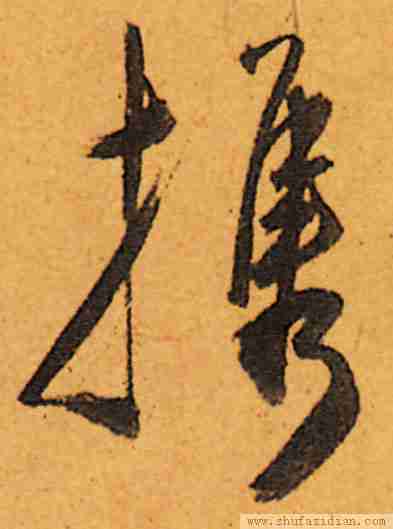 携
www.shufazidian.com